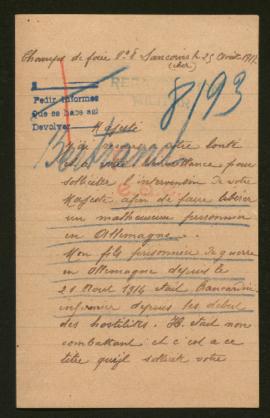 Champs de foire N° 8 Sancoins le 25 Août 1917
(Cher)
Pedir informes
Que se hace asi
Devolver
8/193
Majesté
J'ai recours à votre bonté
et à votre bienveillance pour
solliciter l'intervention de votre
Majesté afin de faire libérer
un malheureux prisonnier
en Allemagne.
Mon fils prisonnier de guerre
en Allemagne depuis le
20 Aout 1914 etait Brancardier
infirmier depuis les debut
des hostilités. Il etait non
combattant et c'est a ce
titre qu'il sollicite votre